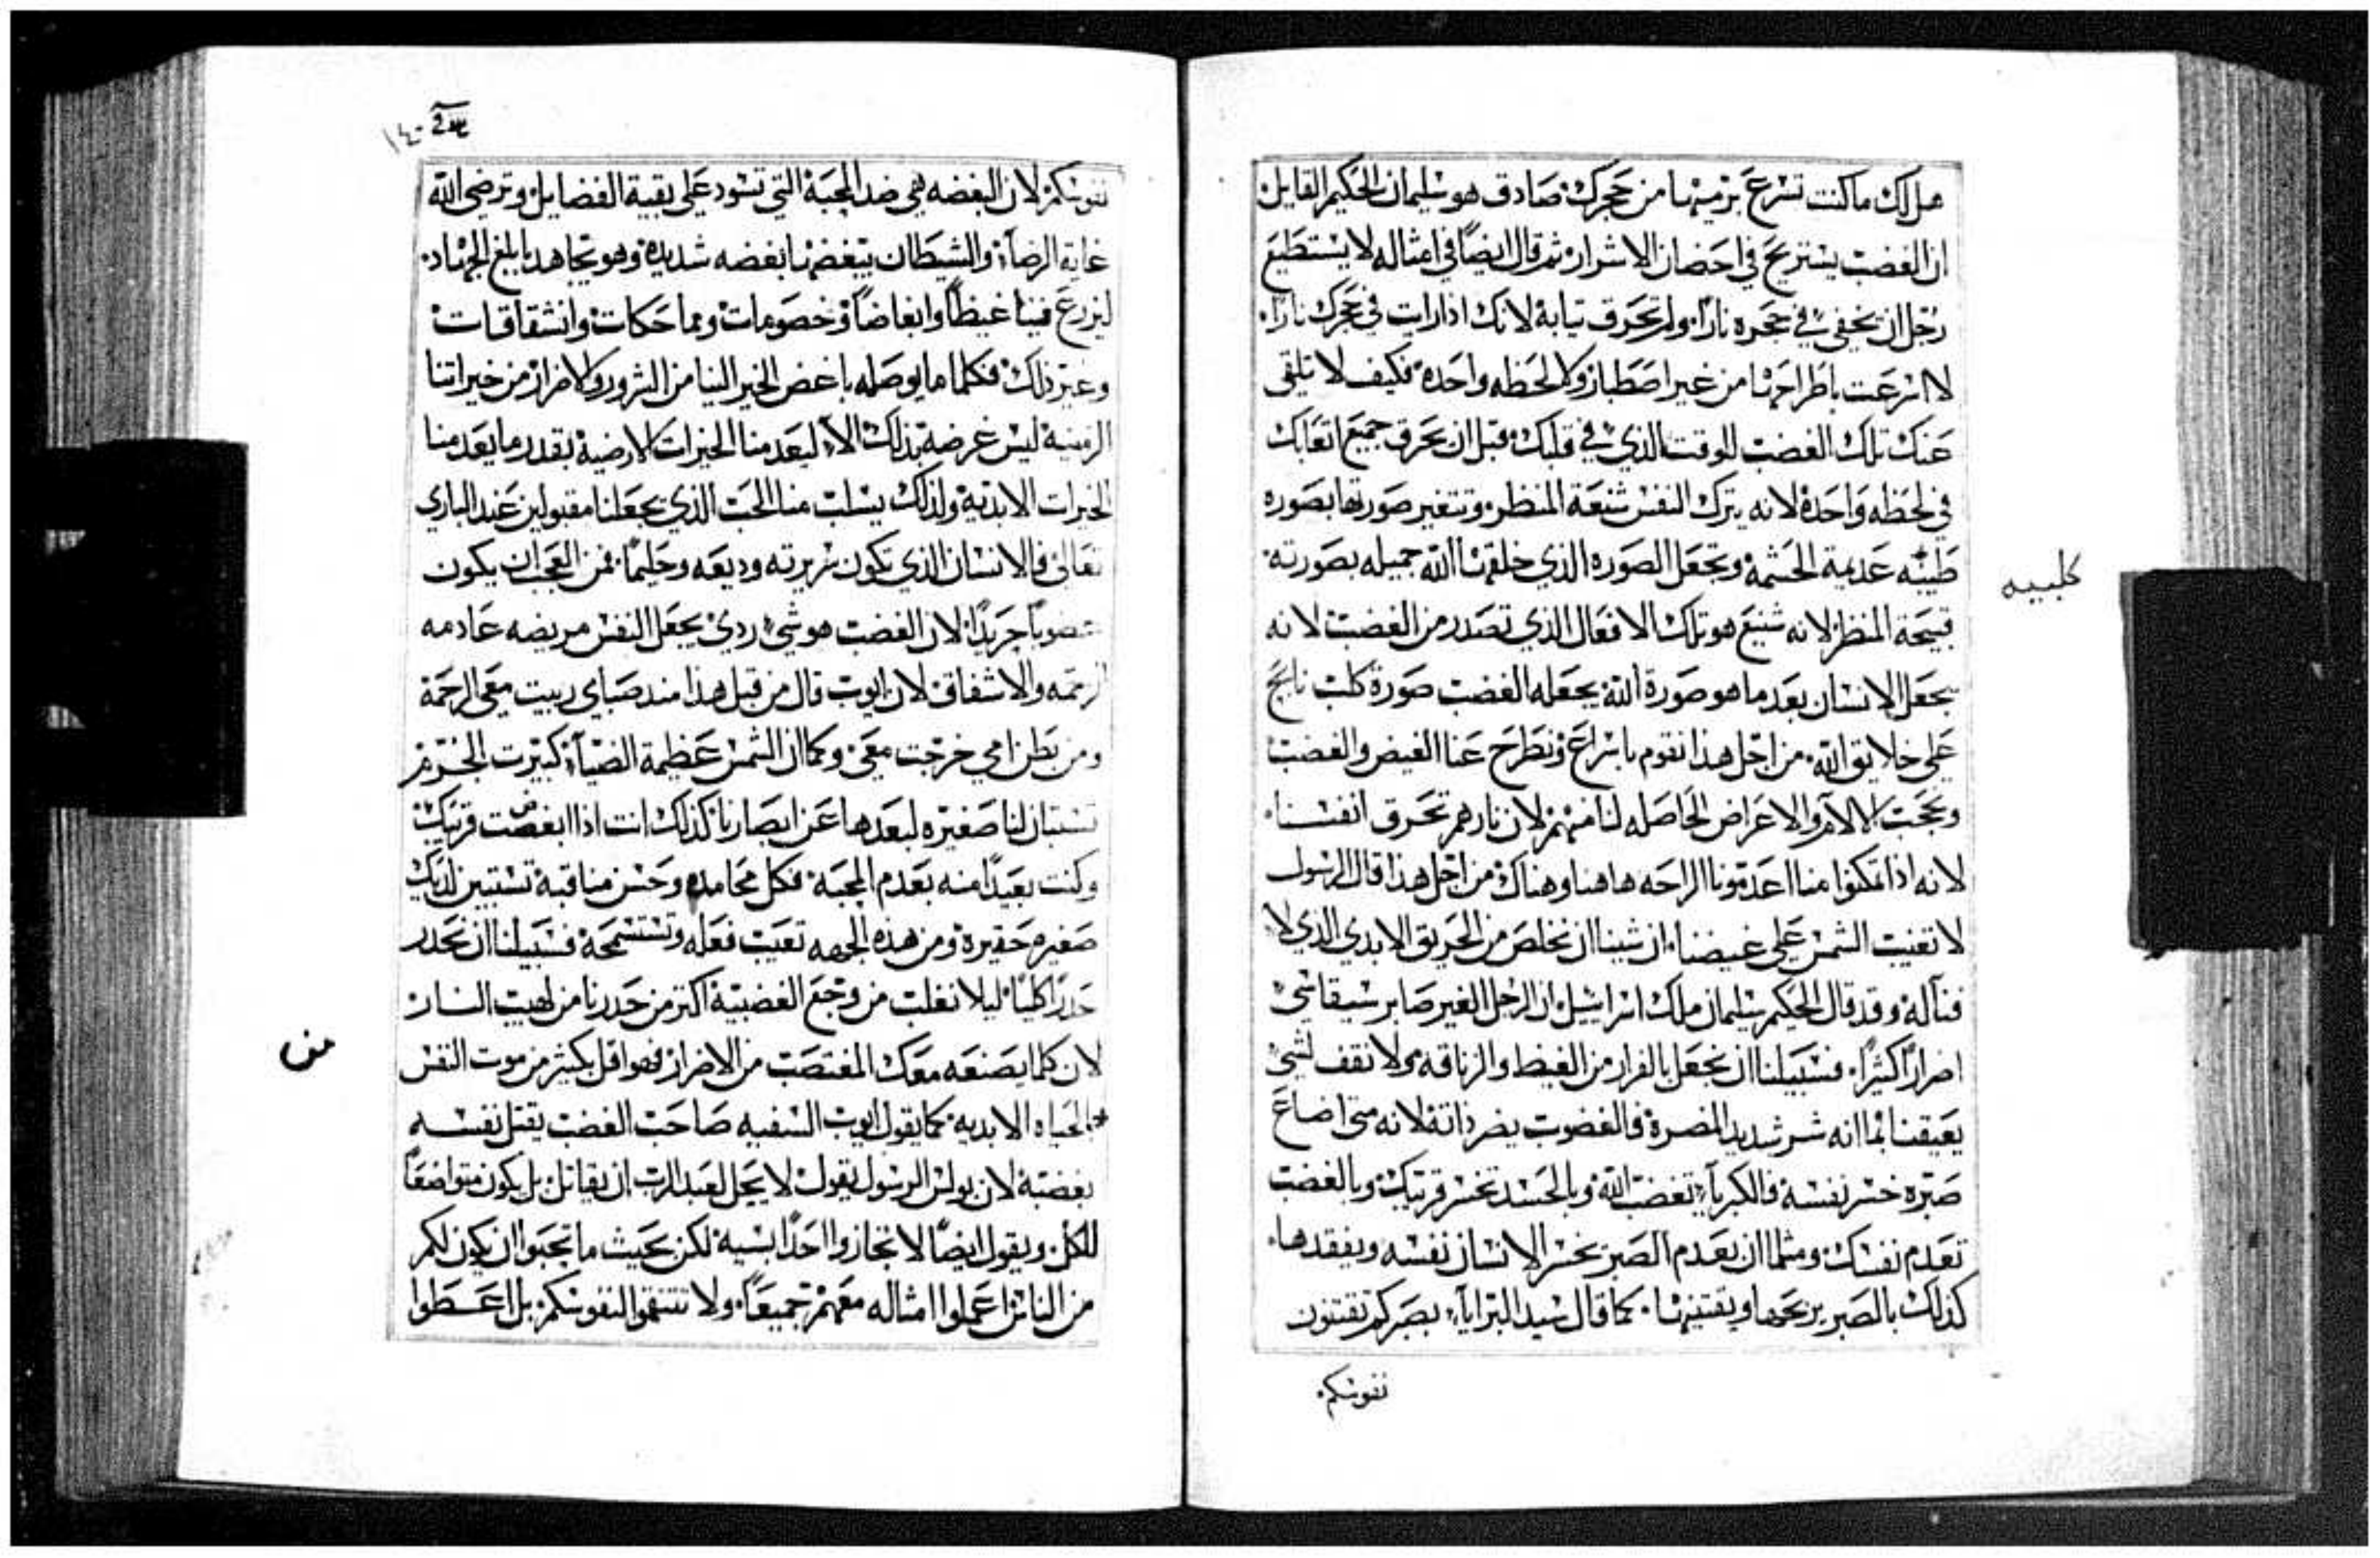 هل لك ما كنت تسرع برميها من حجرك صادق هو سليمان الحكيم القايل
ان الغضب يستريح في احضان الاشرار ثم قال ايضًا في امثاله لا يستطيع
رجل ان يخفي في حجره نارًا ولم تحرق تيابه لانك اذا رايت في حجرك نارًا
لا اسرعت باطراحها من غير اصطبار ولا لحظه واحده فكيف لا تلقي
عنك تلك الغضب للوقت الذي في قلبك قبل ان يحرق جميع اتعابك
في لحظه واحده لانه يترك النفس شنعة المنظر وتتغير صورتها بصوره
عديمة الحشمه ويجعل الصوره الذي خلقها الله جميله بصورته
كلبيه
قبيحة المنظر لانه شنيع هو تلك الافعال الذي تصدر من الغضب لانه
يجعل الانسان بعد ما هو صورة الله يجعله الغضب صورة كلب نابح
على خلايق الله من اجل هذا نقوم باسراع ونطرح عنا الغيض والغضب
والاعراض الحاصله لنا منهم لان نارهم تحرق انفسنا
لانه اذا تمكنوا منا اعدمونا الراحه هاهنا وهناك من اجل هذا قال الرسول
لا تغيب الشمس على غيضنا ان شينا ان نخلص من الحريق الابدي الذي لا
فنا له وقد قال الحكيم سليمان ملك اسراييل ان الرجل الغير صابر سيقاسي
اضرارًا كثيرًا فسبيلنا ان نجعل بالفرار من الغيظ والزناقه ولا نقف لشي
يعيقنا بما انه شر شديد المضرة فالغضوب يضر ذاته لانه متى اضاع
صبره خسر نفسه فالكبريا تغضب الله وبالحسد تخسر قريبك وبالغضب
تعدم نفسك ومثلما ان بعدم الصبر يخسر الانسان نفسه ويفقدها
كذلك بالصبر يربحها ويقتنيها كما قال سيد البرايا بصبركم تقتنون
نفوسكم
١٤٠
نفوسكم لان البغضه هي ضد المحبة التي تسود على بقية الفضايل وترضي الله
غاية الرضا والشيطان يبغضنا بغضه شديده وهو يجاهد بابلغ الجهاد
ليزرع فينا غيظًا وابغاضًا وخصومات ومماحكات وانشقاقات
وغير ذلك فكلما يوصله باغض الخير الينا من الشرور والاضرار من خيراتنا
الزمنية ليس غرضه بذلك الا ليعدمنا الخيرات الارضية بقدر ما يعدمنا
الخيرات الابدية ولذلك يسلب منا الحب الذي يجعلنا مقبولين عند الباري
تعالى فالانسان الذي تكون سريرته وديعه وحليمًا فمن العجب ان يكون
غضوبًا لان الغضب هو شي ردي يجعل النفس مريضه عادمه
الرحمه والاشفاق لان ايوب قال من قبل هذا مند صباي ربيت معي الرحمة
ومن بطن امي خرجت معي وكما ان الشمس عظيمة الضيا كبيرت الجرم
تستبان لنا صغيره لبعدها عن ابصارنا كذلك انت اذا ابغضت قريبك
وكنت بعيدًا منه بعدم المحبة فكل محامده وحسن مناقبه تستبين لديك
صغيره حقيرة ومن هذه الجهه تعيب فعله وتستسمجه فسبيلنا ان نحدر
حدرًا كليًا ليلا نغلب من وجع الغضبية اكتر من حدرنا من لهيب النار
لان كلما يصنعه معك المغتصب من الاضرار فهو اقل بكثير من موت النفس
من
الحياه الابديه كما يقول ايوب السفيه صاحب الغضب يقتل نفسه
بغضبه لان بولس الرسول يقول لا يحل لعبد الرب ان يقاتل بل يكون متواضعًا
للكل ويقول ايضًا لا تجازوا احدًا بسيه لكن بحيث ما تحبوا ان يكون لكم
من الناس اعملوا امثاله معهم جميعًا ولا تنتقموا لنفوسكم بل اعطوا